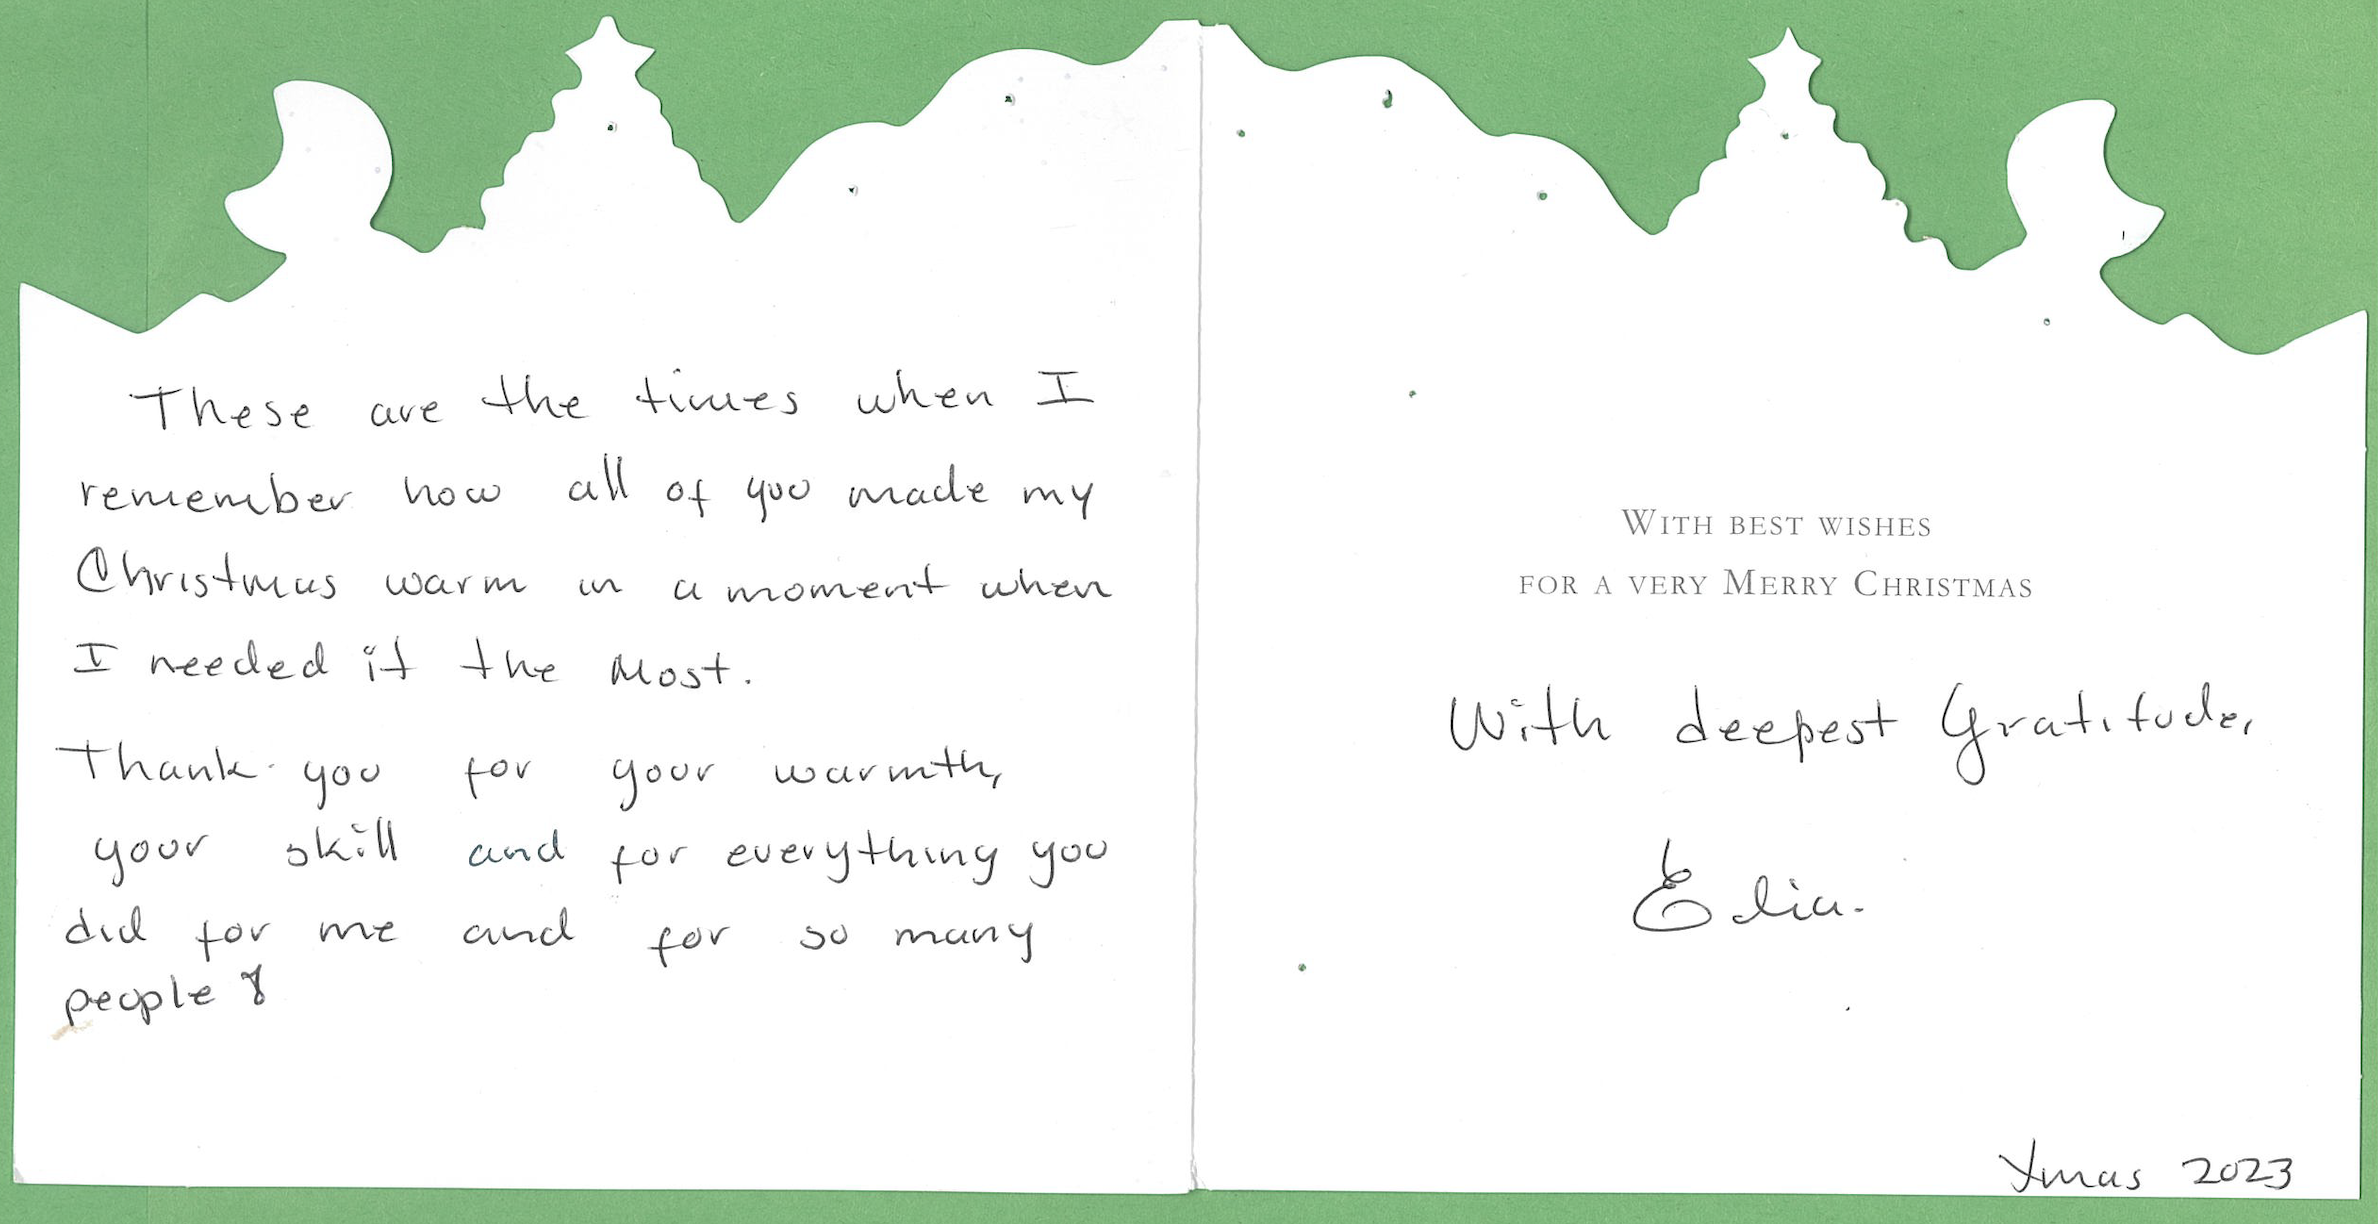 These are the times when I
remember how all of you made my
Christmas warm in a moment when
I needed it the Most.
Thank you for your warmth,
your skill and for everything you
did for me and for so many
people
WITH BEST WISHES
FOR A VERY MERRY CHRISTMAS
With deepest Gratitude,
Elia.
Xmas 2023